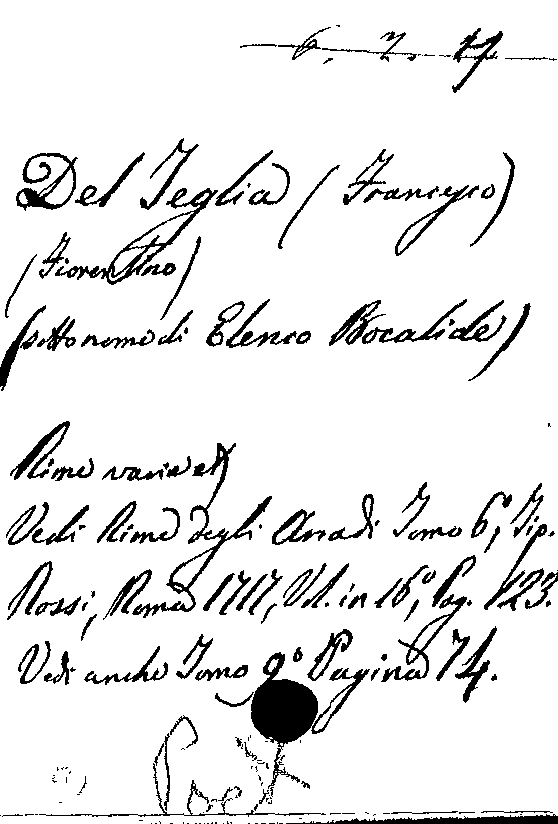 6. 2. 27
Del Teglia (Francesco)
(Fiorentino)
(sotto nome di Elenco Bocalide)
Rime varie
Vedi Rime degli Arcadi Tomo 6°, Tip.
Rossi, Roma 1717, Vol. in 16°, Pag. 123.
Vedi anche Tomo 9° Pagina 74.